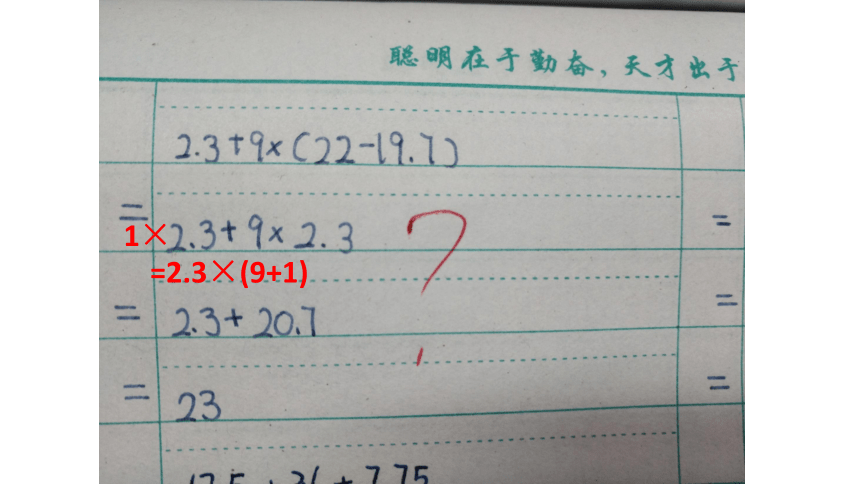 聪明在于勤奋,天才出于
2.3+9×(22-19.7)
= 2.3+9×2.3 ? =
1×
=2.3×(9+1)
= 2.3+20.7 =
= 23 =